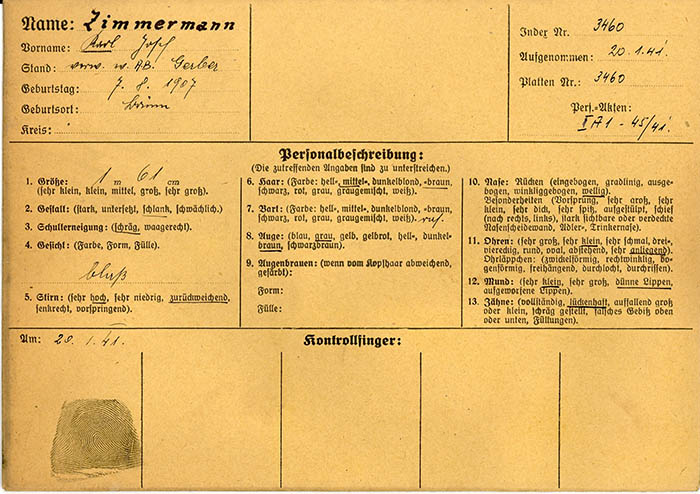 Name: Zimmermann
Vorname: Karl Josef
Stand: verw. w. AB. Gerber
Geburtstag: 7. 8. 1907
Geburtsort: Brünn
Kreis:
Index Nr. 3460
Aufgenommen: 20.1.41.
Platten Nr.: 3460
Pers.-Akten:
II A1 - 45/41.
Personalbeschreibung:
(Die zutreffenden Angaben sind zu unterstreichen.)
1. Größe: 1 m 61 cm
(sehr klein, klein, mittel, groß, sehr groß).
2. Gestalt: (stark, untersetzt, schlank, schwächlich.)
3. Schulterneigung: (schräg, waagerecht).
4. Gesicht: (Farbe, Form, Fülle).
blaß
5. Stirn: (sehr hoch, sehr niedrig, zurückweichend,
senkrecht, vorspringend).
6. Haar: (Farbe: hell-, mittel-, dunkelblond, -braun,
schwarz, rot, grau, graugemischt, weiß).
7. Bart: (Farbe: hell-, mittel-, dunkelblond, -braun,
schwarz, rot, grau, graugemischt, weiß).
8. Auge: (blau, grau, gelb, gelbrot, hell-, dunkel-
braun, schwarzbraun).
9. Augenbrauen: (wenn vom Kopfhaar abweichend,
gefärbt):
Form:
Fülle:
10. Nase: Rücken (eingebogen, gradlinig, ausge-
bogen, winkliggebogen, wellig).
Besonderheiten (Vorsprung, sehr groß, sehr
klein, sehr dick, sehr spitz, aufgestülpt, schief
(nach rechts, links), stark verdickte oder sichtbare
Nasenscheidewand, Adler-, Trinkernase).
11. Ohren: (sehr groß, sehr klein, sehr schmal, drei-,
viereckig, rund, oval, abstehend, sehr anliegend).
Ohrläppchen: (zwickelförmig, rechtwinklig, bo-
genförmig, freihängend, durchlocht, durchrissen).
12. Mund: (sehr klein, sehr groß, dünne Lippen,
aufgeworfene Lippen).
13. Zähne: (vollständig, lückenhaft, auffallend groß
oder klein, schräg gestellt, falsches Gebiß oben
oder unten, Füllungen).
Am: 20.1.41.
Kontrollfinger: